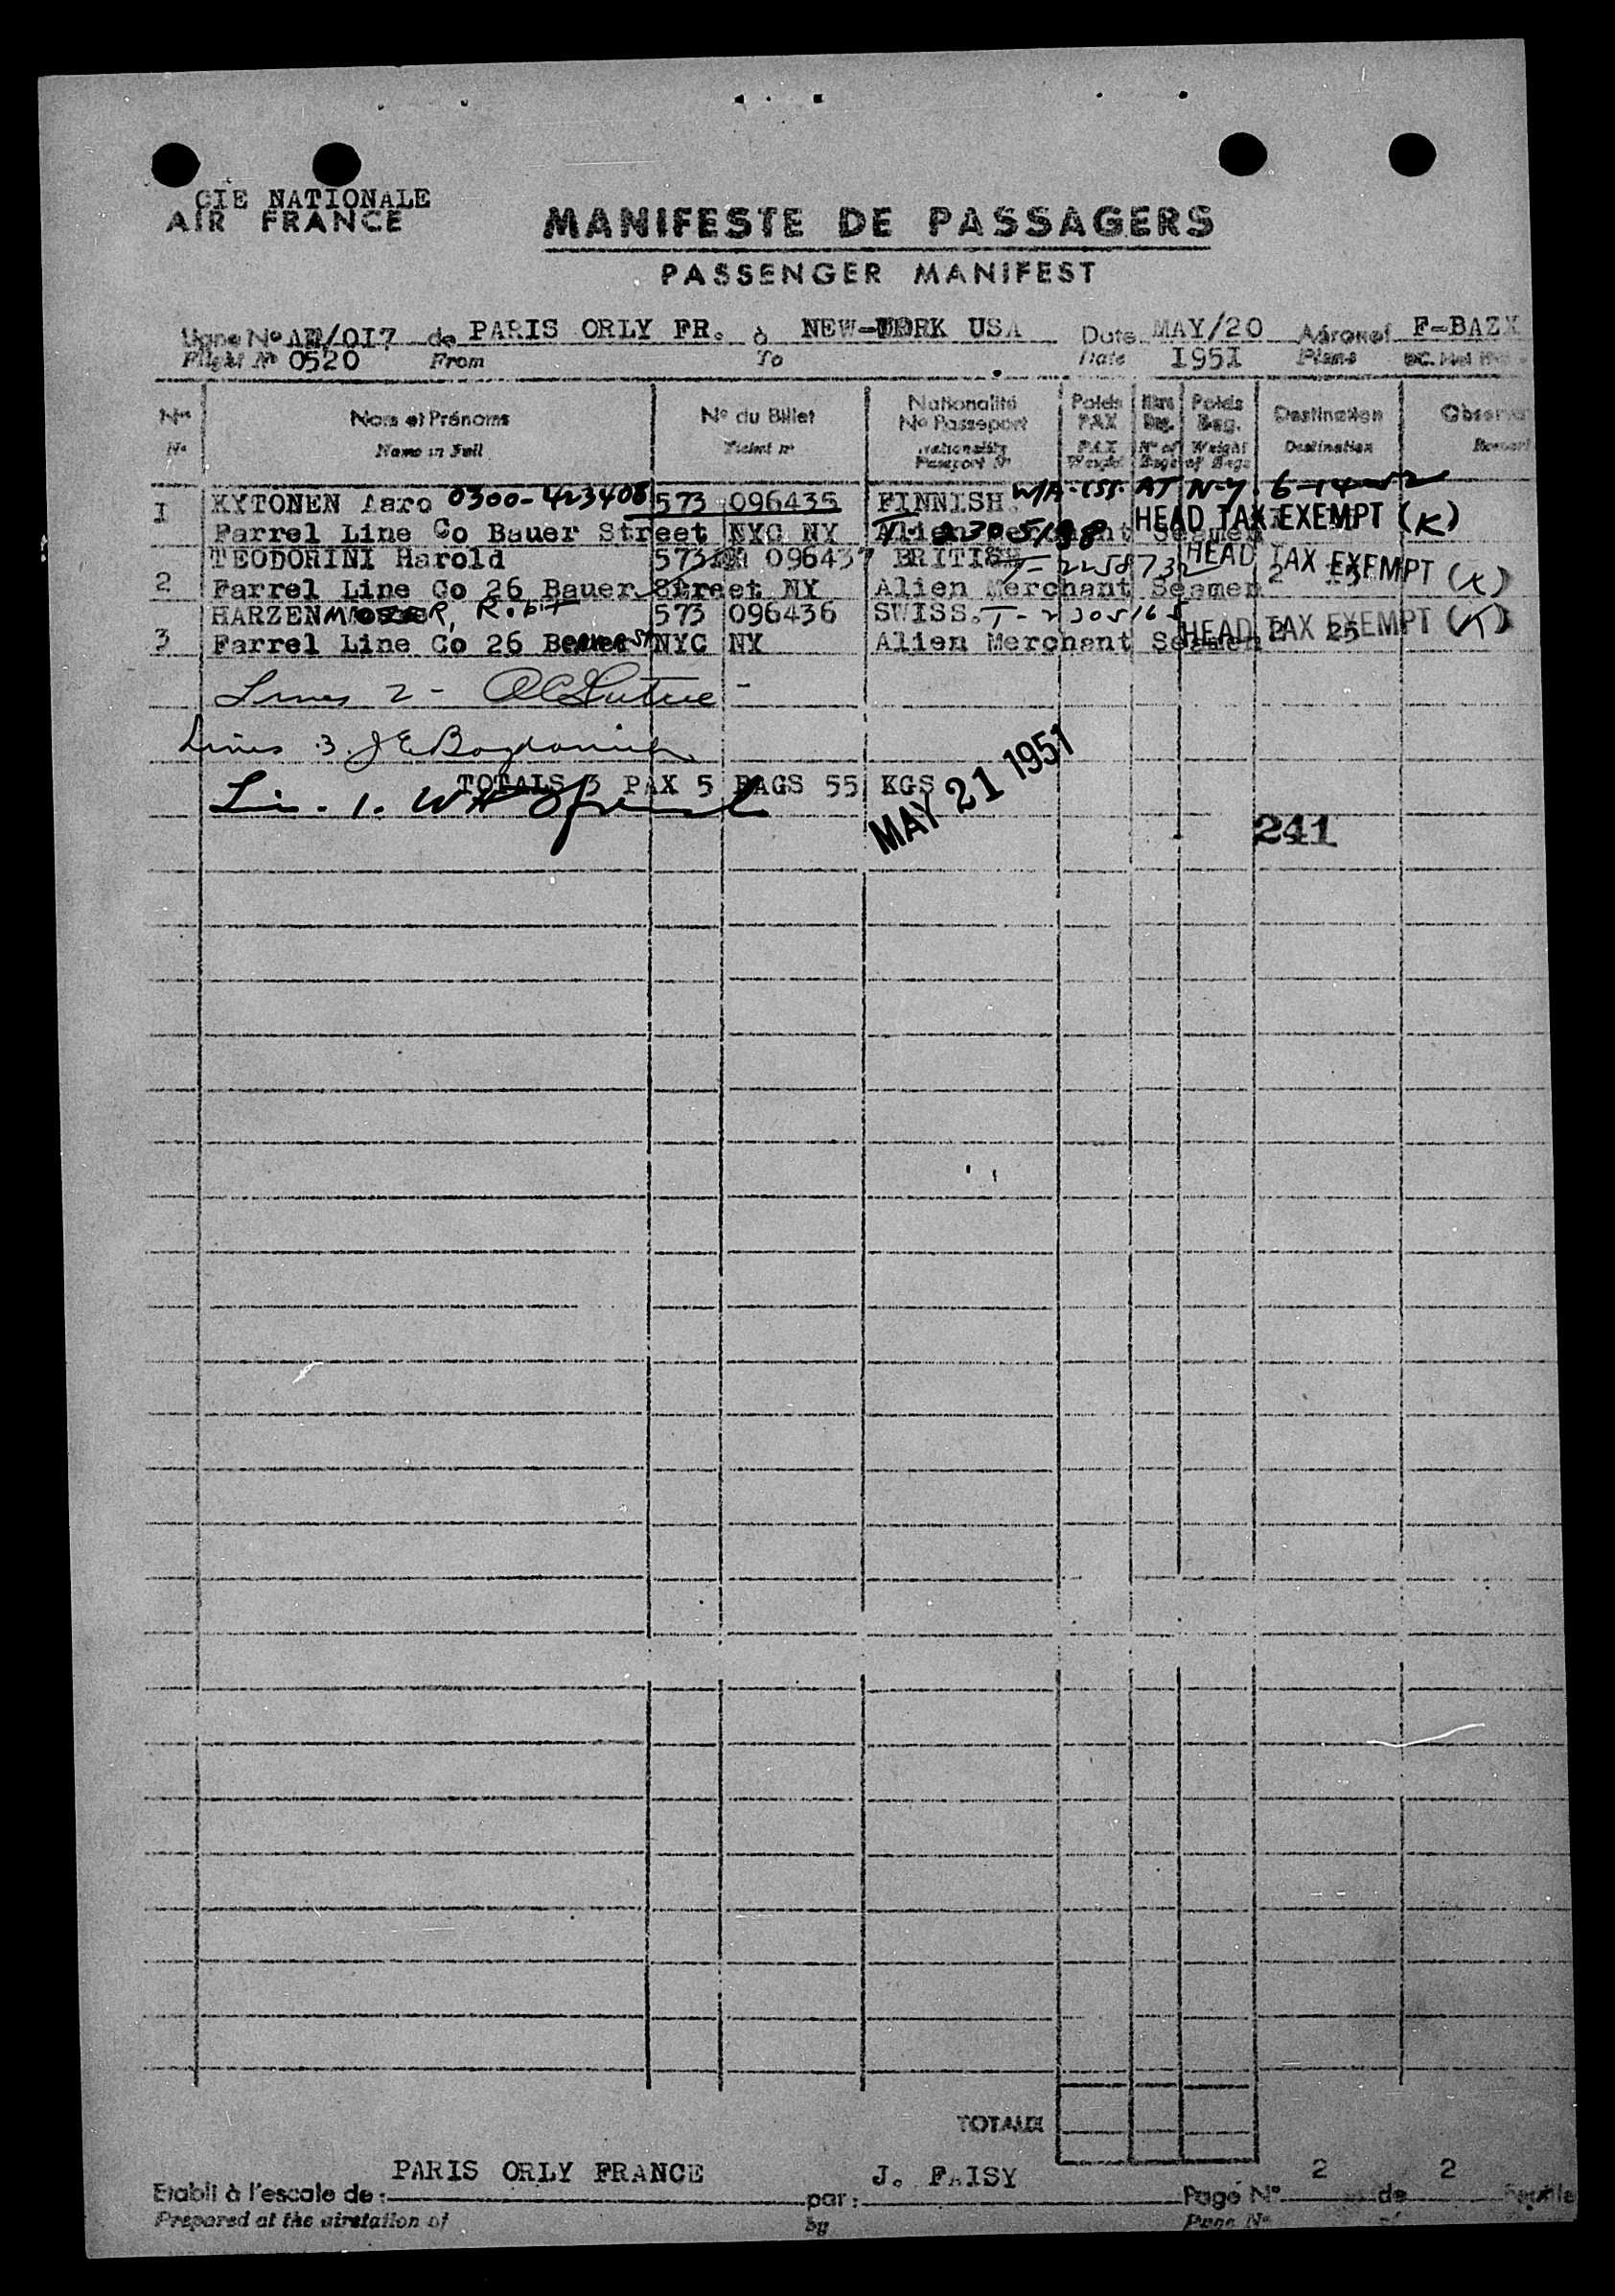 CIE NATIONALE
AIR FRANCE
MANIFESTE DE PASSAGERS
PASSENGER MANIFEST
Ligne No AF/017 de PARIS ORLY FR. à NEW-YORK USA Date MAY/20 Aéronef F-BAZX
Flight No 0520 From To Date 1951 Plane
Nos Noms et Prénoms No du Billet Nationalité No Passeport Poids PAX Nbre Bag. Poids Bag. Destination
No Name in Full Ticket no Nationality Passport No PAX Weight No of Bags Weight of Bags Destination
1 KYTONEN Aaro 0300-423408 573 096435 FINNISH. AT N-Y. 6-14-52
Farrel Line Co Bauer Street NYC NY Alien Merchant Seamen T-2305188 HEAD TAX EXEMPT (K)
TEODORINI Harold 573 096437 BRITISH T-2258732 HEAD TAX EXEMPT (K)
2 Farrel Line Co 26 Bauer Street NY Alien Merchant Seamen 2
HARZENMOSER, Robt 573 096436 SWISS. T-2305165 HEAD TAX EXEMPT (K)
3 Farrel Line Co 26 Beaver St NYC NY Alien Merchant Seamen 2 25
Lines 2 -
Lines 3. J E Bogdanich
TOTALS 3 PAX 5 BAGS 55 KGS
Li. 1. W H
MAY 21 1951
241
TOTAUX
PARIS ORLY FRANCE J. FAISY 2 2
Etabli à l'escale de : par : Page No de
Prepared at the airstation of by Page No of